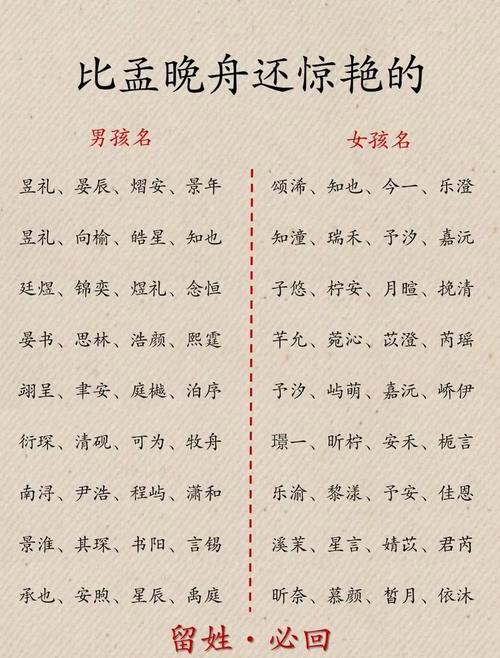 比孟晚舟还惊艳的
男孩名
昱礼、晏辰、熠安、景年
昱礼、向榆、皓星、知也
廷煜、锦奕、煜礼、念恒
晏书、思林、浩颜、熙霆
翊呈、聿安、庭樾、泊序
衍琛、清砚、可为、牧舟
南浔、尹浩、程屿、潇和
景淮、其琛、书阳、言锡
承也、安煦、星辰、禹庭
女孩名
颂浠、知也、今一、乐澄
知潼、瑞禾、予汐、嘉沅
子悠、柠安、月暄、挽清
芊允、菀沁、苡澄、芮瑶
予汐、屿萌、嘉沅、峤伊
璟一、昕柠、安禾、栀言
乐渝、黎漾、予安、佳恩
溪茉、星言、婧苡、君芮
昕奈、慕颜、皙月、依沐
留姓·必回